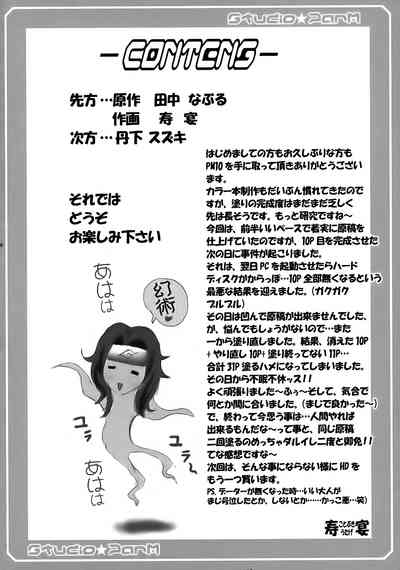 Studio★PanM
-CONTENS-
先方…原作　田中　なぶる
作画　寿　宴
次方…丹下　スズキ
それでは
どうぞ
お楽しみ下さい
はじめましての方もお久しぶりな方も
PM10を手に取って頂きありがとうござい
ます。
カラー本制作もだいぶん慣れてきたので
すが、塗りの完成度はまだまだ乏しく
先は長そうです。もっと研究ですね～
今回は、前半いいペースで着実に原稿を
仕上げていたのですが、10P目を完成させた
次の日に事件が起こりました。
それは、翌日PCを起動させたらハード
ディスクがからっぽ…10P全部無くなるという
最悪な結果を迎えました。(ガクガク
ブルブル)
その日は凹んで原稿が出来ませんでした
が、悩んでもしょうがないので…また
一から塗り直しました。結果、消えた10P
+やり直し10P+塗り終ってない11P…
合計31P塗るハメになってしまいました。
その日から不眠不休ッス!!
よく頑張りました～ふぅ～そして、気合で
何とか間に合いました。(まじで良かった～)
で、終わって今思う事は…人間やれば
出来るもんだな～って事と、同じ原稿
二回塗るのめっちゃダルイし二度と御免!!
てな感想ですな～
次回は、そんな事にならない様にHDを
もう一つ買います。
PS.データーが無くなった時…いい大人が
まじ号泣したとか、しないとか……かっこ悪…笑)
寿宴
ことぶき
うたげ
あはは
幻術
ユラ
ユラ
あはは
Studio★PanM